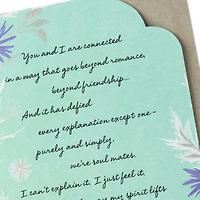 You and I are connected
in a way that goes beyond romance,
beyond friendship...
And it has defied
every explanation except one-
purely and simply,
we're soul mates.
I can't explain it, I just feel it.
my spirit lifts